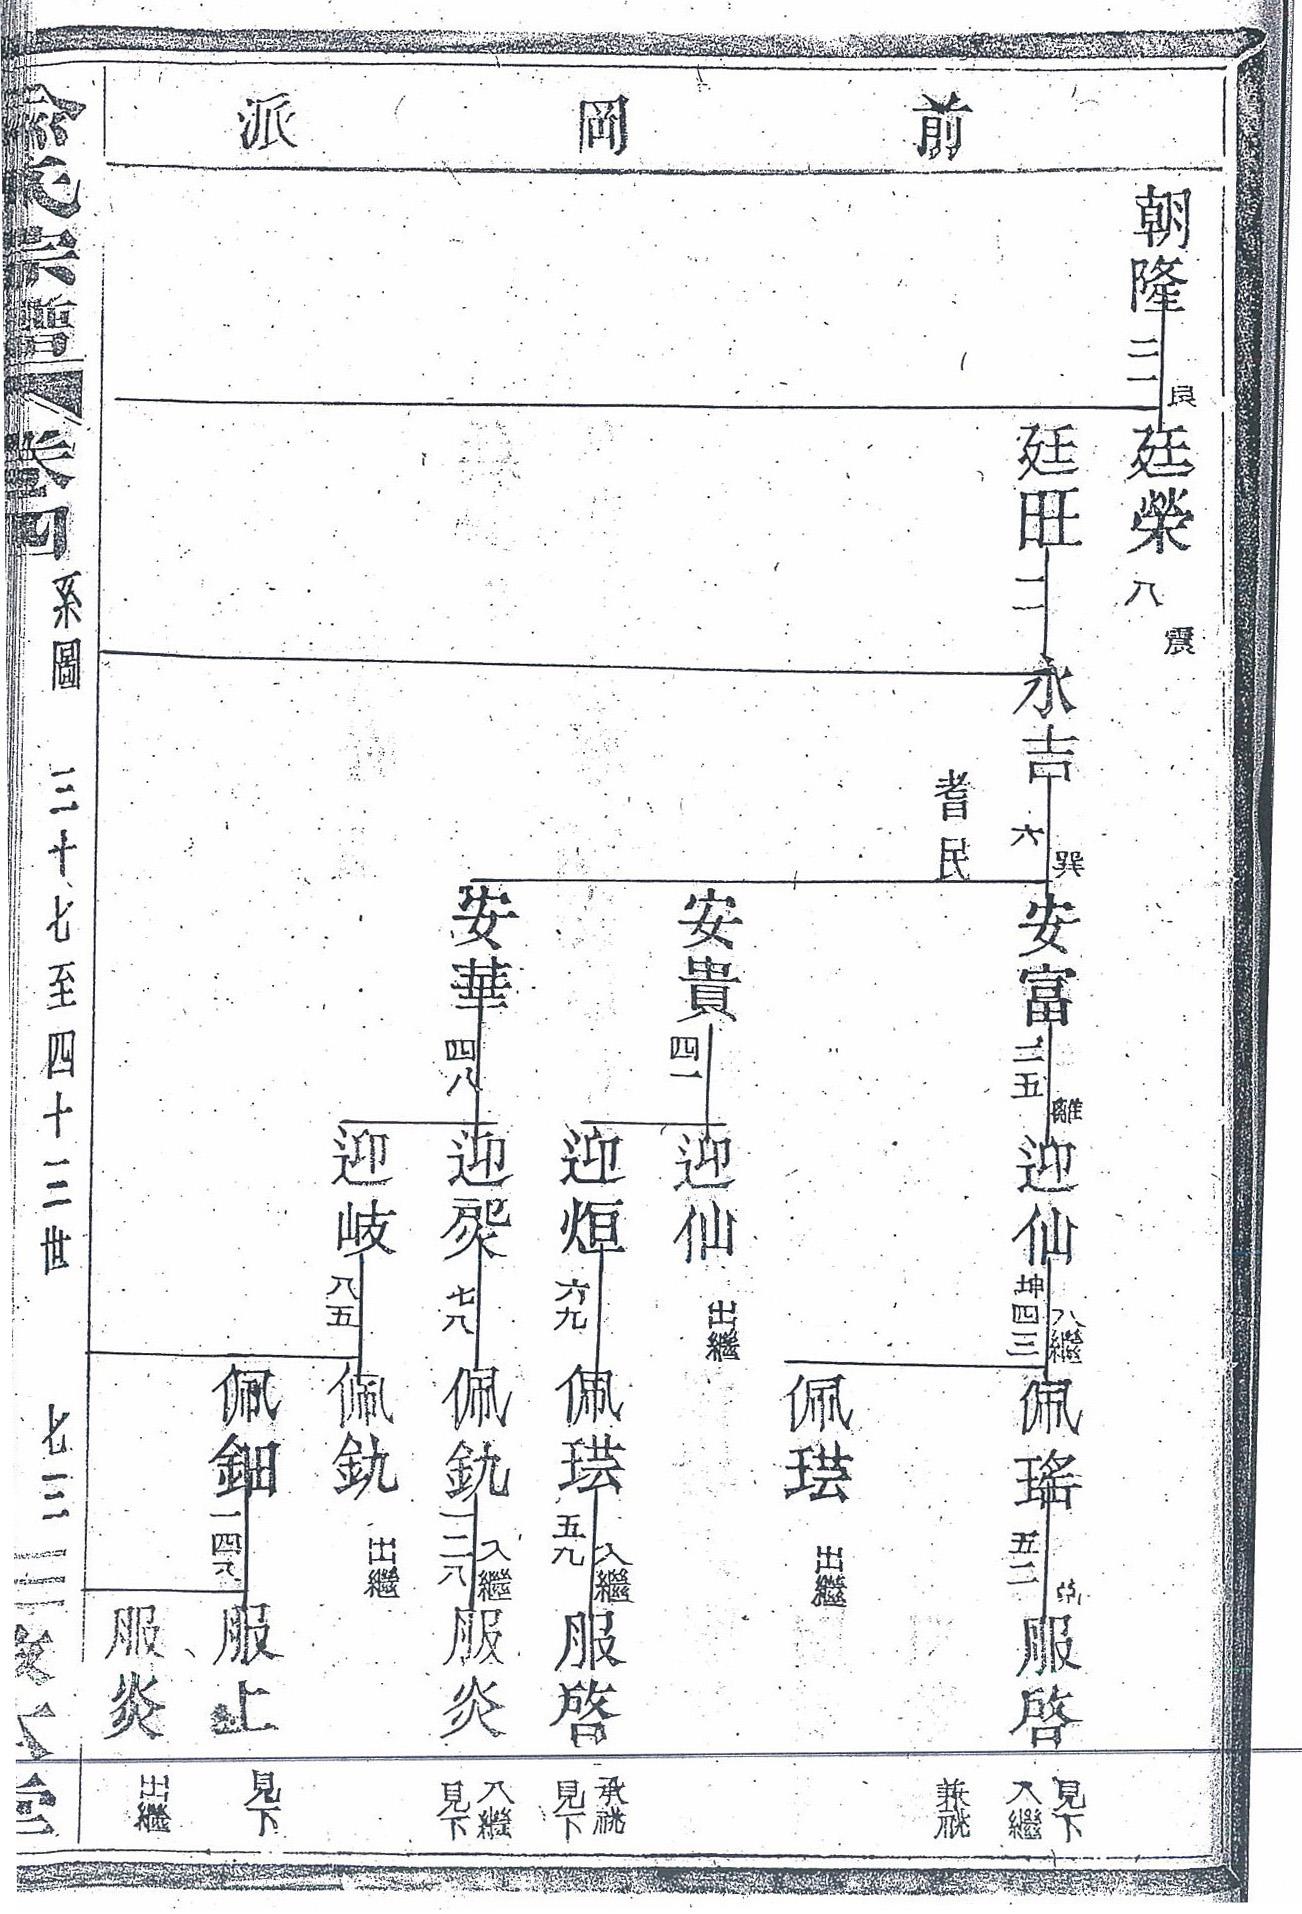 前岡派
朝隆
三一
艮
廷榮
八
震
廷旺
二一
永吉
六
巽
耆民
安富
三五
離
安貴
四一
安華
四八
迎仙
坤四三
入繼
迎仙
出繼
迎烜
六九
迎
七八
迎岐
八五
佩瑤
五二
佩珙
出繼
佩珙
五九
入繼
佩釚
一二八
入繼
佩釚
出繼
佩鈿
一四九
服啓
見下
入繼
兼祧
服啓
承祧
見下
服炎
入繼
見下
服上
見下
服炎
出繼
氏宗譜
卷四
系圖
三十七至四十二世
七三